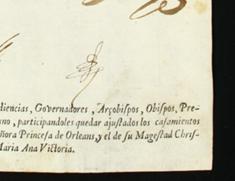 diencias, Governadores, Arçobispos, Obispos, Pre-
no, participandoles quedar ajustados los casamientos
ñora Princesa de Orleans, y el de su Magestad Chris-
Maria Ana Victoria.